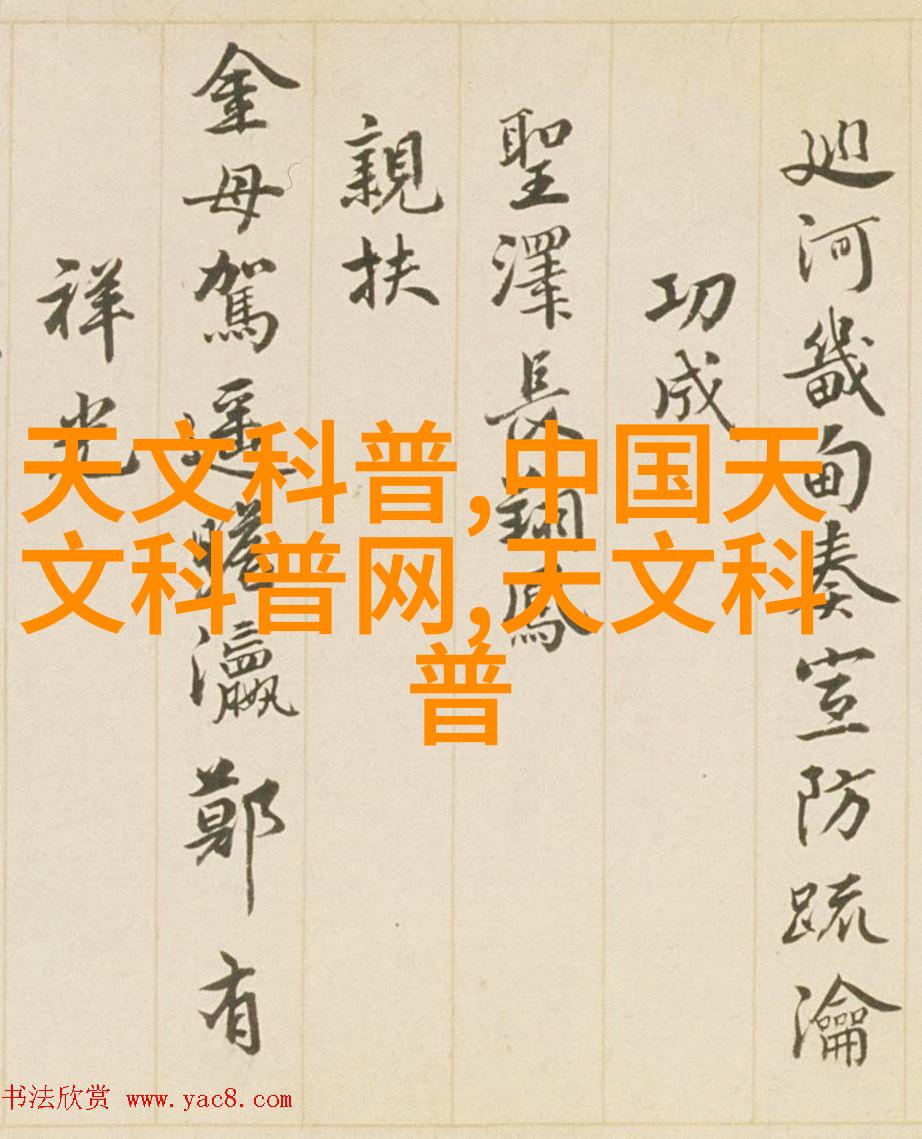 廵河畿甸奏宣防疏瀹
功成
聖澤長翔鳳
親扶
金母駕遥瞻瀛鄭有
祥光
天文科普,中国天
文科普网,天文科
普
书法欣赏 www.yac8.com